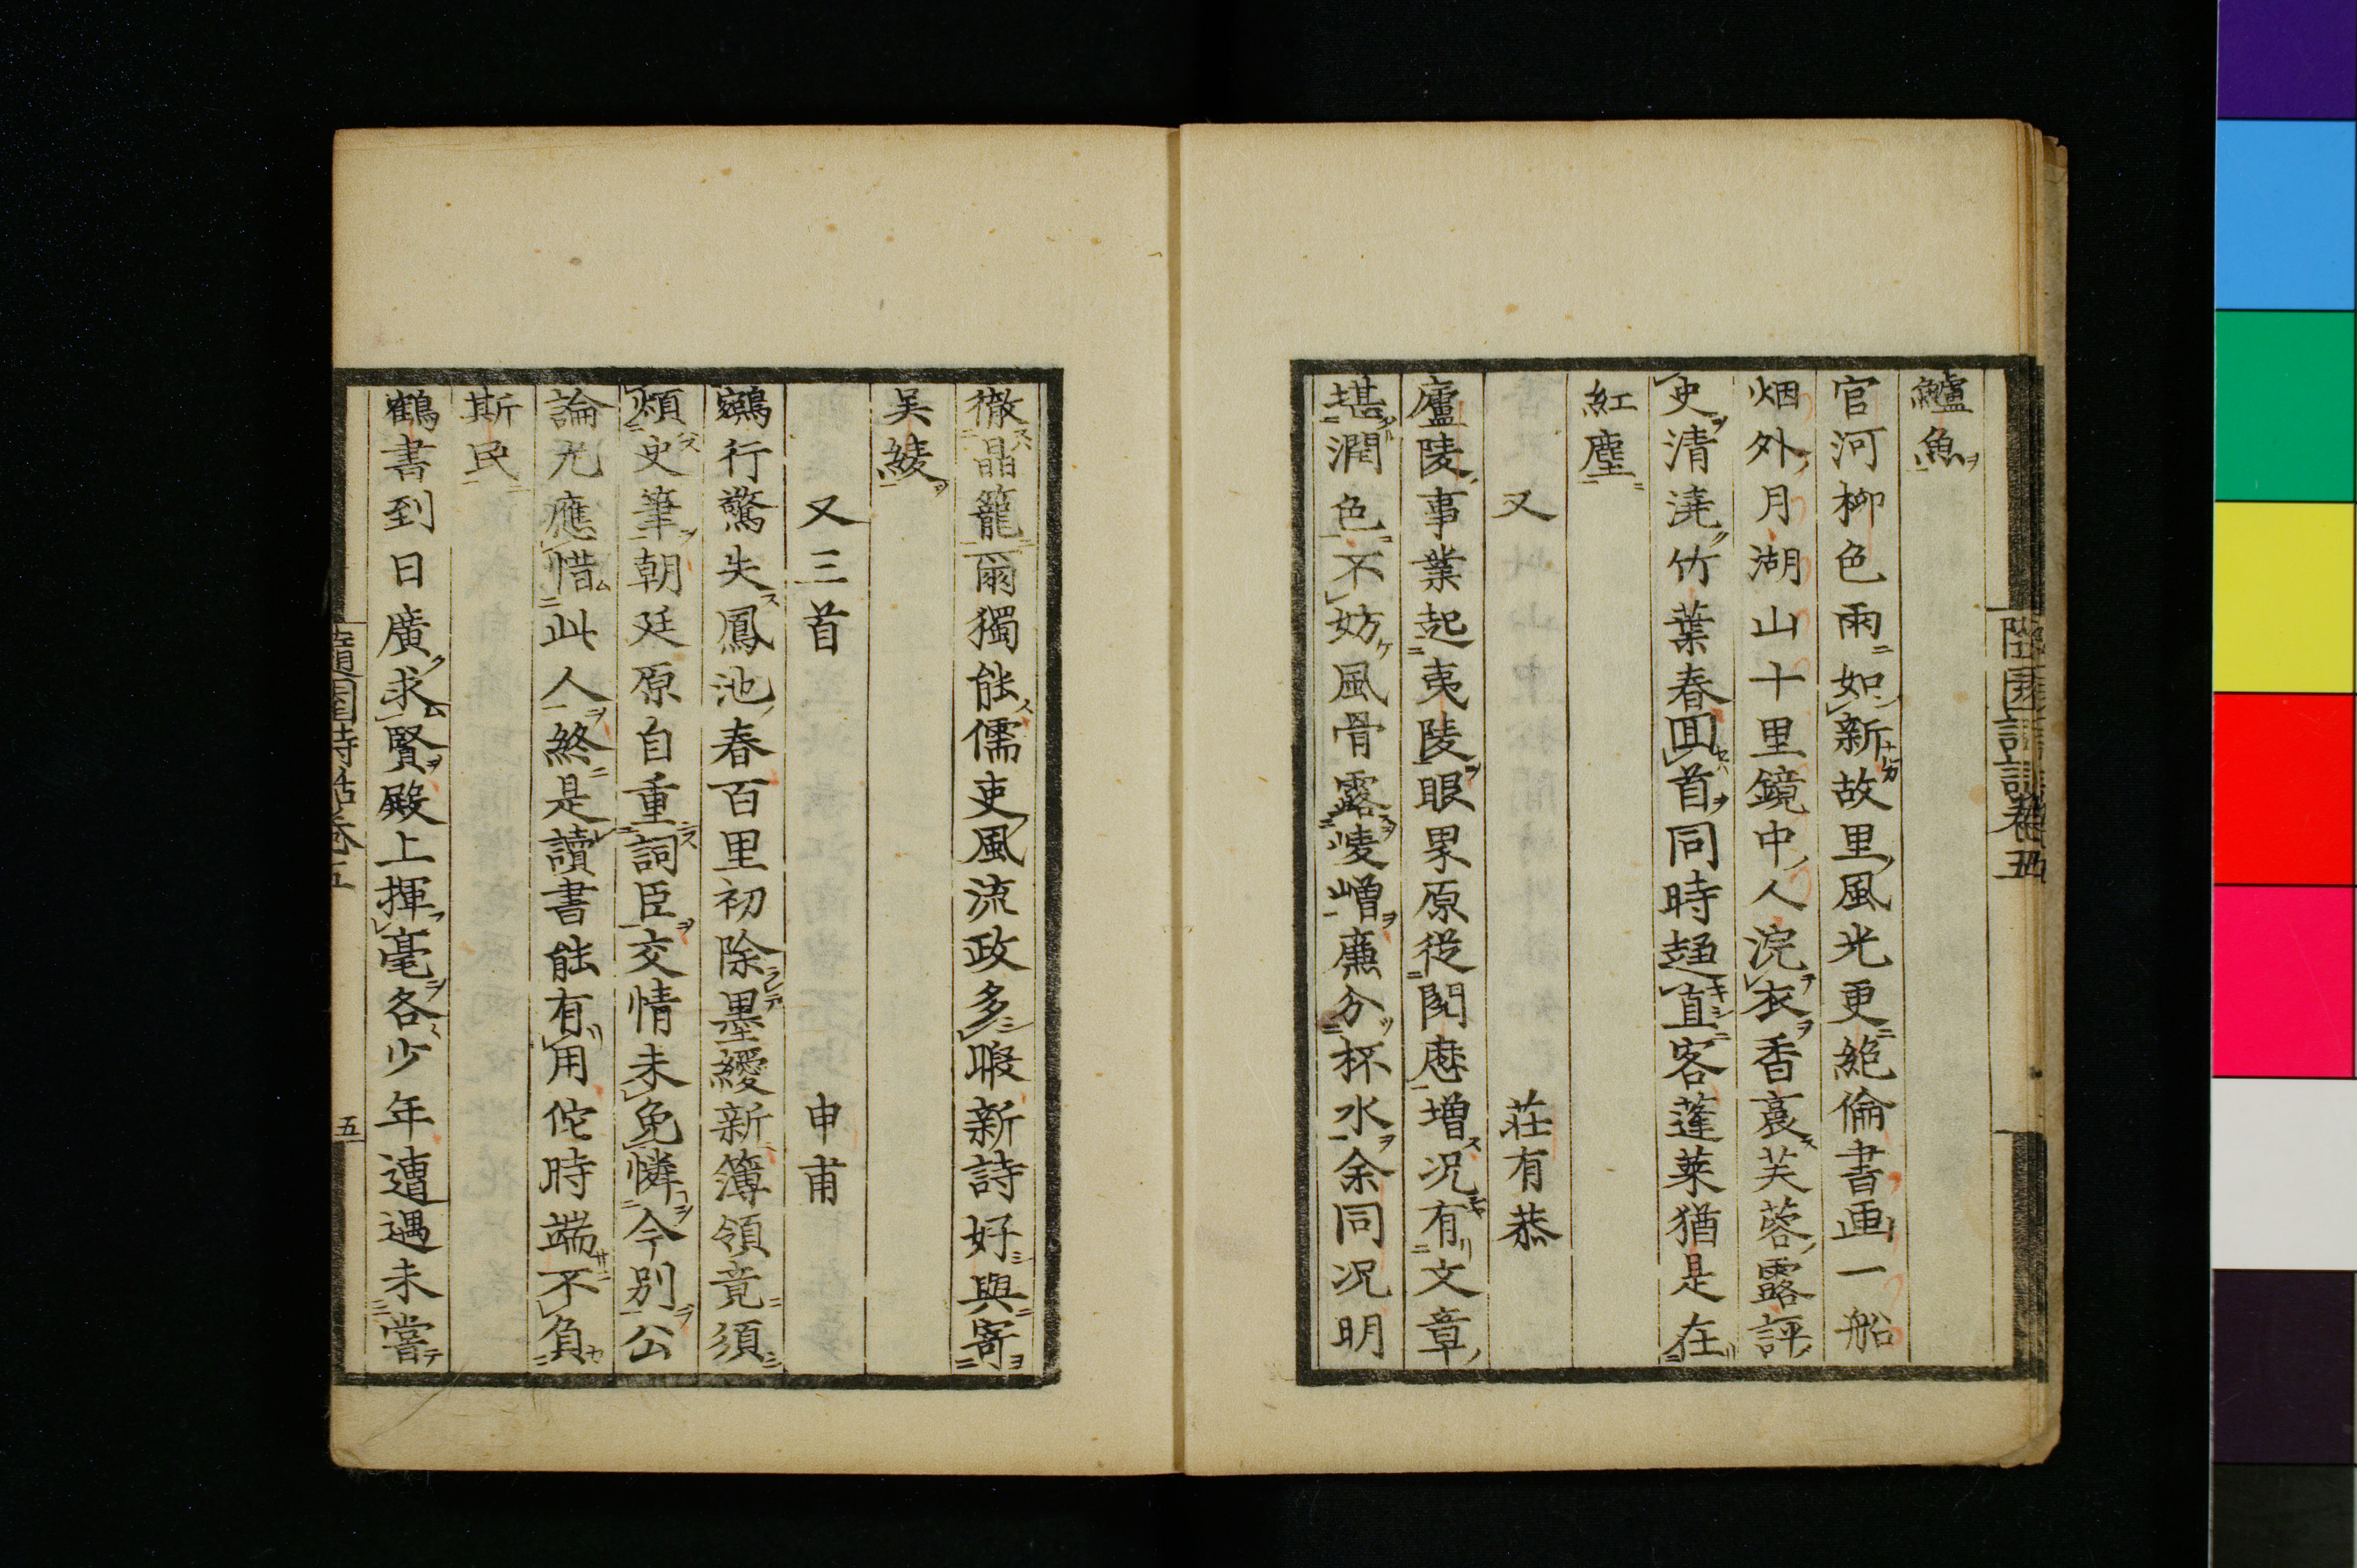 鱸魚
官河柳色雨如新故里風光更絶倫書画一船
烟外月湖山十里鏡中人浣衣香裛芙蓉露評
史清澆竹葉春回首同時趨直客蓬莱猶是在
紅塵
又 荘有恭
廬陵事業起夷陵眼界原従閱歴増况有文章
堪潤色不妨風骨露崚嶒廉分杯水余同况明
徹晶籠爾獨能儒吏風流政多暇新詩好與寄
吴綾
又三首 申甫
鵷行驚失鳳池春百里初除墨綬新簿領竟須
煩史筆朝廷原自重詞臣交情未免憐今别公
論尤應惜此人終是讀書能有用佗時端不負
斯民
鶴書到日廣求賢殿上揮毫各少年遭遇未嘗
五